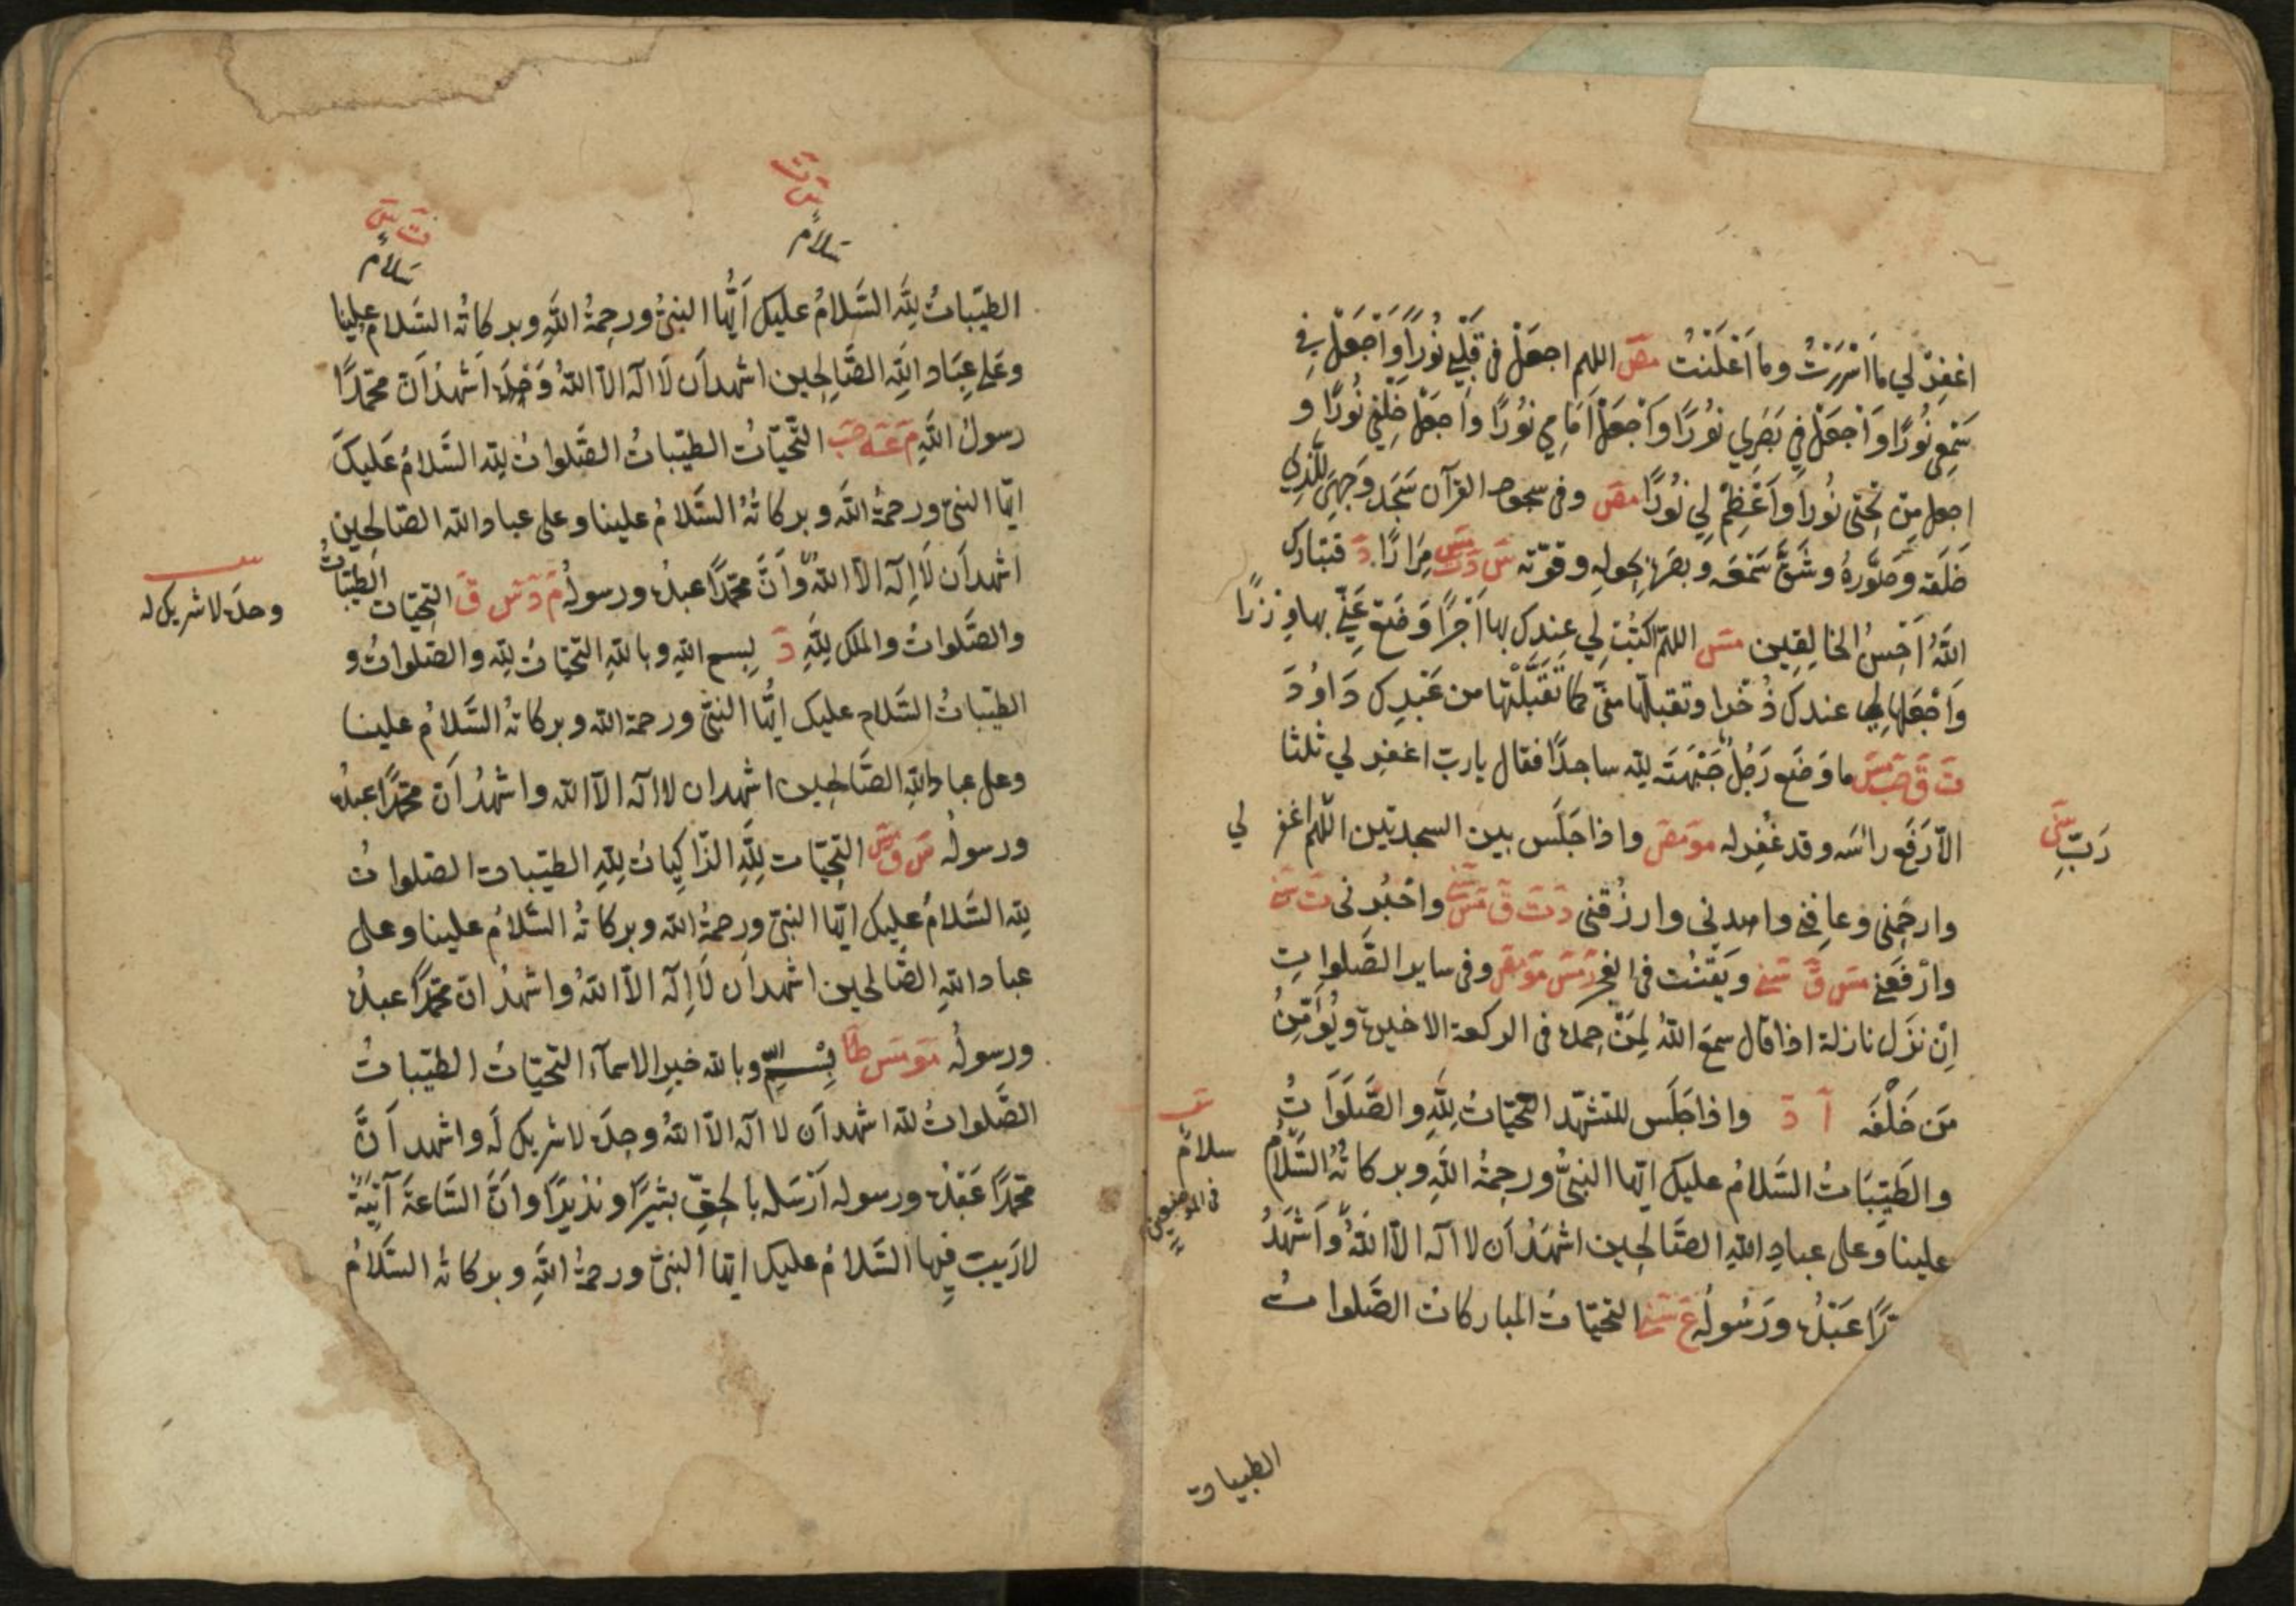 اغفِرْ لي ما اَسْرَرْتُ وما اَعْلَنْتُ مص اللهم اجعَلْ في قَلْبي نُورًا وَاَجْعَلْ في
سَمْعِي نُورًا وَاَجْعَلْ فِي بَصَرِي نُورًا وَاَجْعَلْ اَمَامِي نُورًا وَاَجْعَلْ خَلْفِي نُورًا و
اجعل مِنْ تَحْتِي نُورًا وَاَعْظِمْ لِي نُورًا مص وفي سجود القرآن سَجَدَ وَجْهِيَ لِلَّذِي
خَلَقَه وصَوَّرَهُ وشَقَّ سَمْعَه وبصَرَهُ بحولِهِ وقوّتِه س د ت مس مِرَارًا د فتبارك
اللهُ اَحْسَنُ الخالِقِين مس اللهمّ اكتُبْ لي عِندك بها اَجْرًا وَضَعْ عَنِّي بها وِزْرًا
وَاَجْعَلها لِي عندك ذُخْرا وتقبلها منّي كما تَقَبَّلْتَها من عَبْدِك دَاوُدَ
ت ق حب مس ما وَضَع رَجُلٌ جَبْهَتَه لِلّه ساجدًا فقال يارب اغفر لي ثلثا
الّا رَفَع رأسَه وقد غُفِر له مو مص واذا جَلَس بين السجدتين اللّهم اغفر لي
رَبِّ سنى
وارحَمْني وعافِني واهدِني وارزُقني د ت ق مس سنى واجْبُرني ت سنى
وارْفَعني مس ق سنى ويَقْنُت في الفجر مس مو مص وفي ساير الصَّلواتِ
اِنْ نَزَل نازلة اذا قال سمِعَ اللهُ لِمَنْ حمده في الركعة الاخيرة ويُؤَمِّنُ
مَن خَلْفَه آ د واذا جَلَس للتشهّد التَّحيّاتُ لِلّهِ والصَّلَوَاتُ
والطَّيِّبَاتُ السَّلامُ عليك ايّها النبيُّ ورحمةُ اللهِ وبركاتُهُ السَّلامُ
سلامٌ
في الموضعين
علينا وعلى عبادِ اللهِ الصَّالحين اشهَدُ اَن لا اله الّا اللهُ وَاَشْهَدُ
دًا عَبْدُه ورَسُولُه ع سنى التحيّاتُ المباركاتُ الصَّلواتُ
الطيبات
سلامٌ
سلامٌ
الطيّباتُ لِلّهِ السَّلامُ عليك اَيُّها النبيُّ ورحمةُ اللهِ وبركاتُه السَّلام علينا
وعَلى عِبَادِ اللهِ الصَّالِحِين اشهد اَن لَا اله الّا اللهُ وَحْدَه اَشْهَدُ اَنّ محمّدًا
رسولُ اللهِ م عه حب التَّحيّاتُ الطيّباتُ الصَّلواتُ لِلّه السَّلامُ عَلَيكَ
ايّها النبيّ ورحمةُ اللهِ وبركاتُهُ السَّلامُ علينا وعلى عباد الله الصَّالِحِين
اشهد اَن لَا اِلَه الّا اللهُ واَنَّ محمّدًا عبدُه ورسولُه م د س ق التحيّات الطيّباتُ
وحدَه لا شريك له
والصَّلواتُ والملك لِلّهِ د بِسم اللهِ وباللهِ التحيّاتُ لِلّهِ والصَّلواتُ و
الطيّباتُ السَّلام عليك ايُّها النبيُّ ورحمة الله وبركاتُه السَّلامُ علينا
وعلى عبادِ اللهِ الصَّالحِين اشهد ان لا اله الّا الله واشهدُ اَنّ محمّدًا عبدُه
ورسولُه س ق مس التحيّات لِلّهِ الزّاكِياتُ لِلّهِ الطيّبات الصلواتُ
لِلّه السَّلامُ عليك ايّها النبيّ ورحمةُ الله وبركاتُه السَّلامُ علينا وعلى
عبادِ اللهِ الصَّالحين اشهد اَن لَا اِلَه الّا اللهُ واشهدُ انّ محمّدًا عبدُه
ورسولُه مو مس طا بِسْمِ اللهِ وبالله خيرِ الاسمآء التّحيّاتُ الطيّباتُ
الصَّلواتُ لله اشهد اَن لا اله الّا اللهُ وحدَه لا شريك لَه واشهد اَنَّ
محمّدًا عَبْدُه ورسوله اَرْسَله بالحقِّ بشيرًا ونذيرًا وانَّ السَّاعةَ آتِيَةٌ
لا رَيبَ فِيها السَّلامُ عليك ايّها النبيُّ ورحمةُ اللهِ وبركاته السَّلَامُ